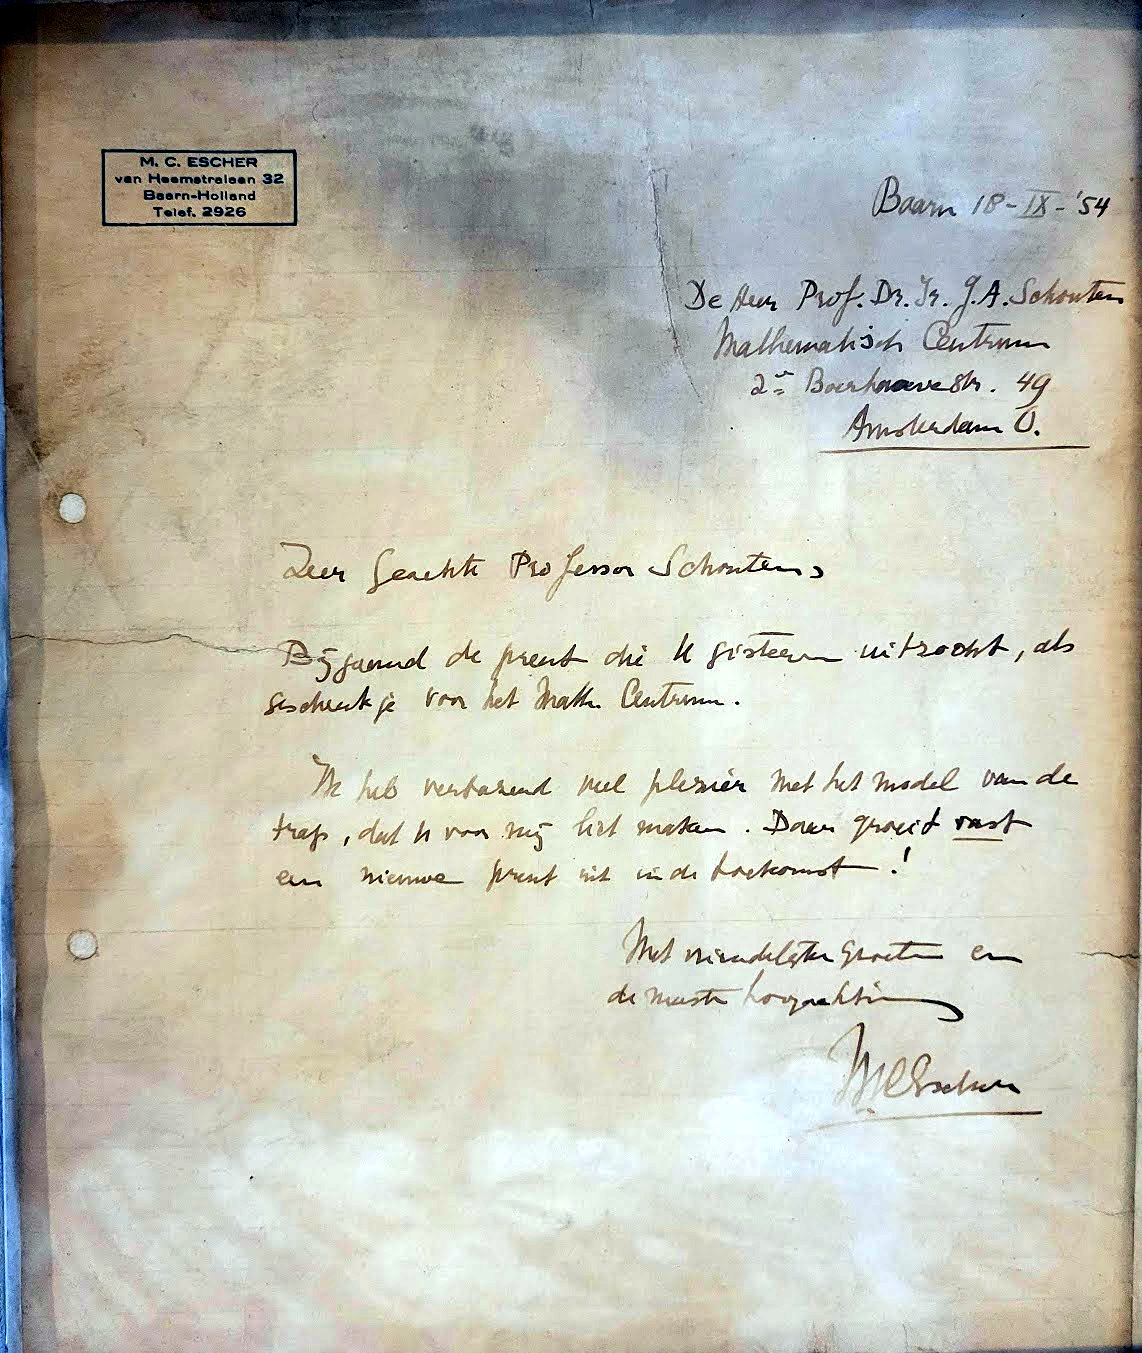 M. C. ESCHER
van Heemstralaan 32
Baarn-Holland
Telef. 2926
Baarn 18-IX-'54
De Heer Prof. Dr. Ir. J.A. Schouten
Mathematisch Centrum
2e Boerhaavestr. 49
Amsterdam O.
Zeer Geachte Professor Schouten,
Bijgaand de prent die U gisteren uitzocht, als
geschenkje voor het Math. Centrum.
Ik heb verbazend veel plezier met het model van de
trap, dat U voor mij liet maken. Daar groeit vast
een nieuwe prent uit in de toekomst!
Met vriendelijke groeten en
de meeste hoogachting
MCEscher